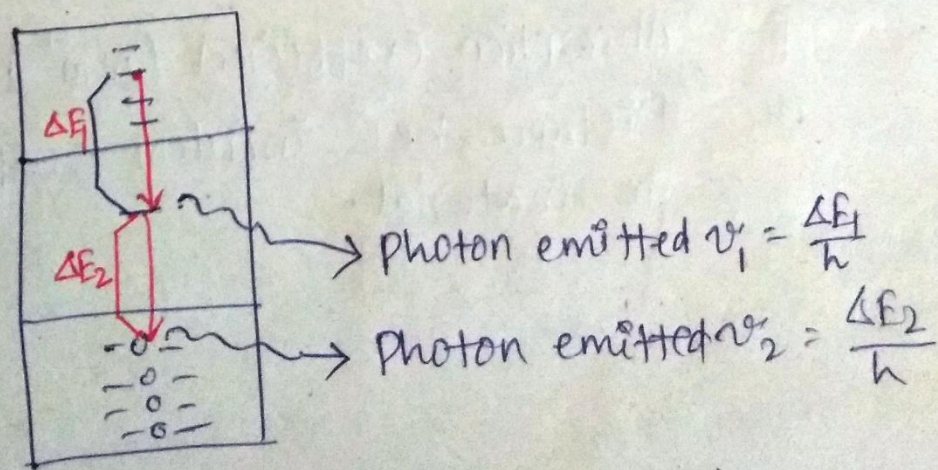 ΔE₁
Photon emitted ν₁ = ΔE₁/h
ΔE₂
Photon emitted ν₂ = ΔE₂/h